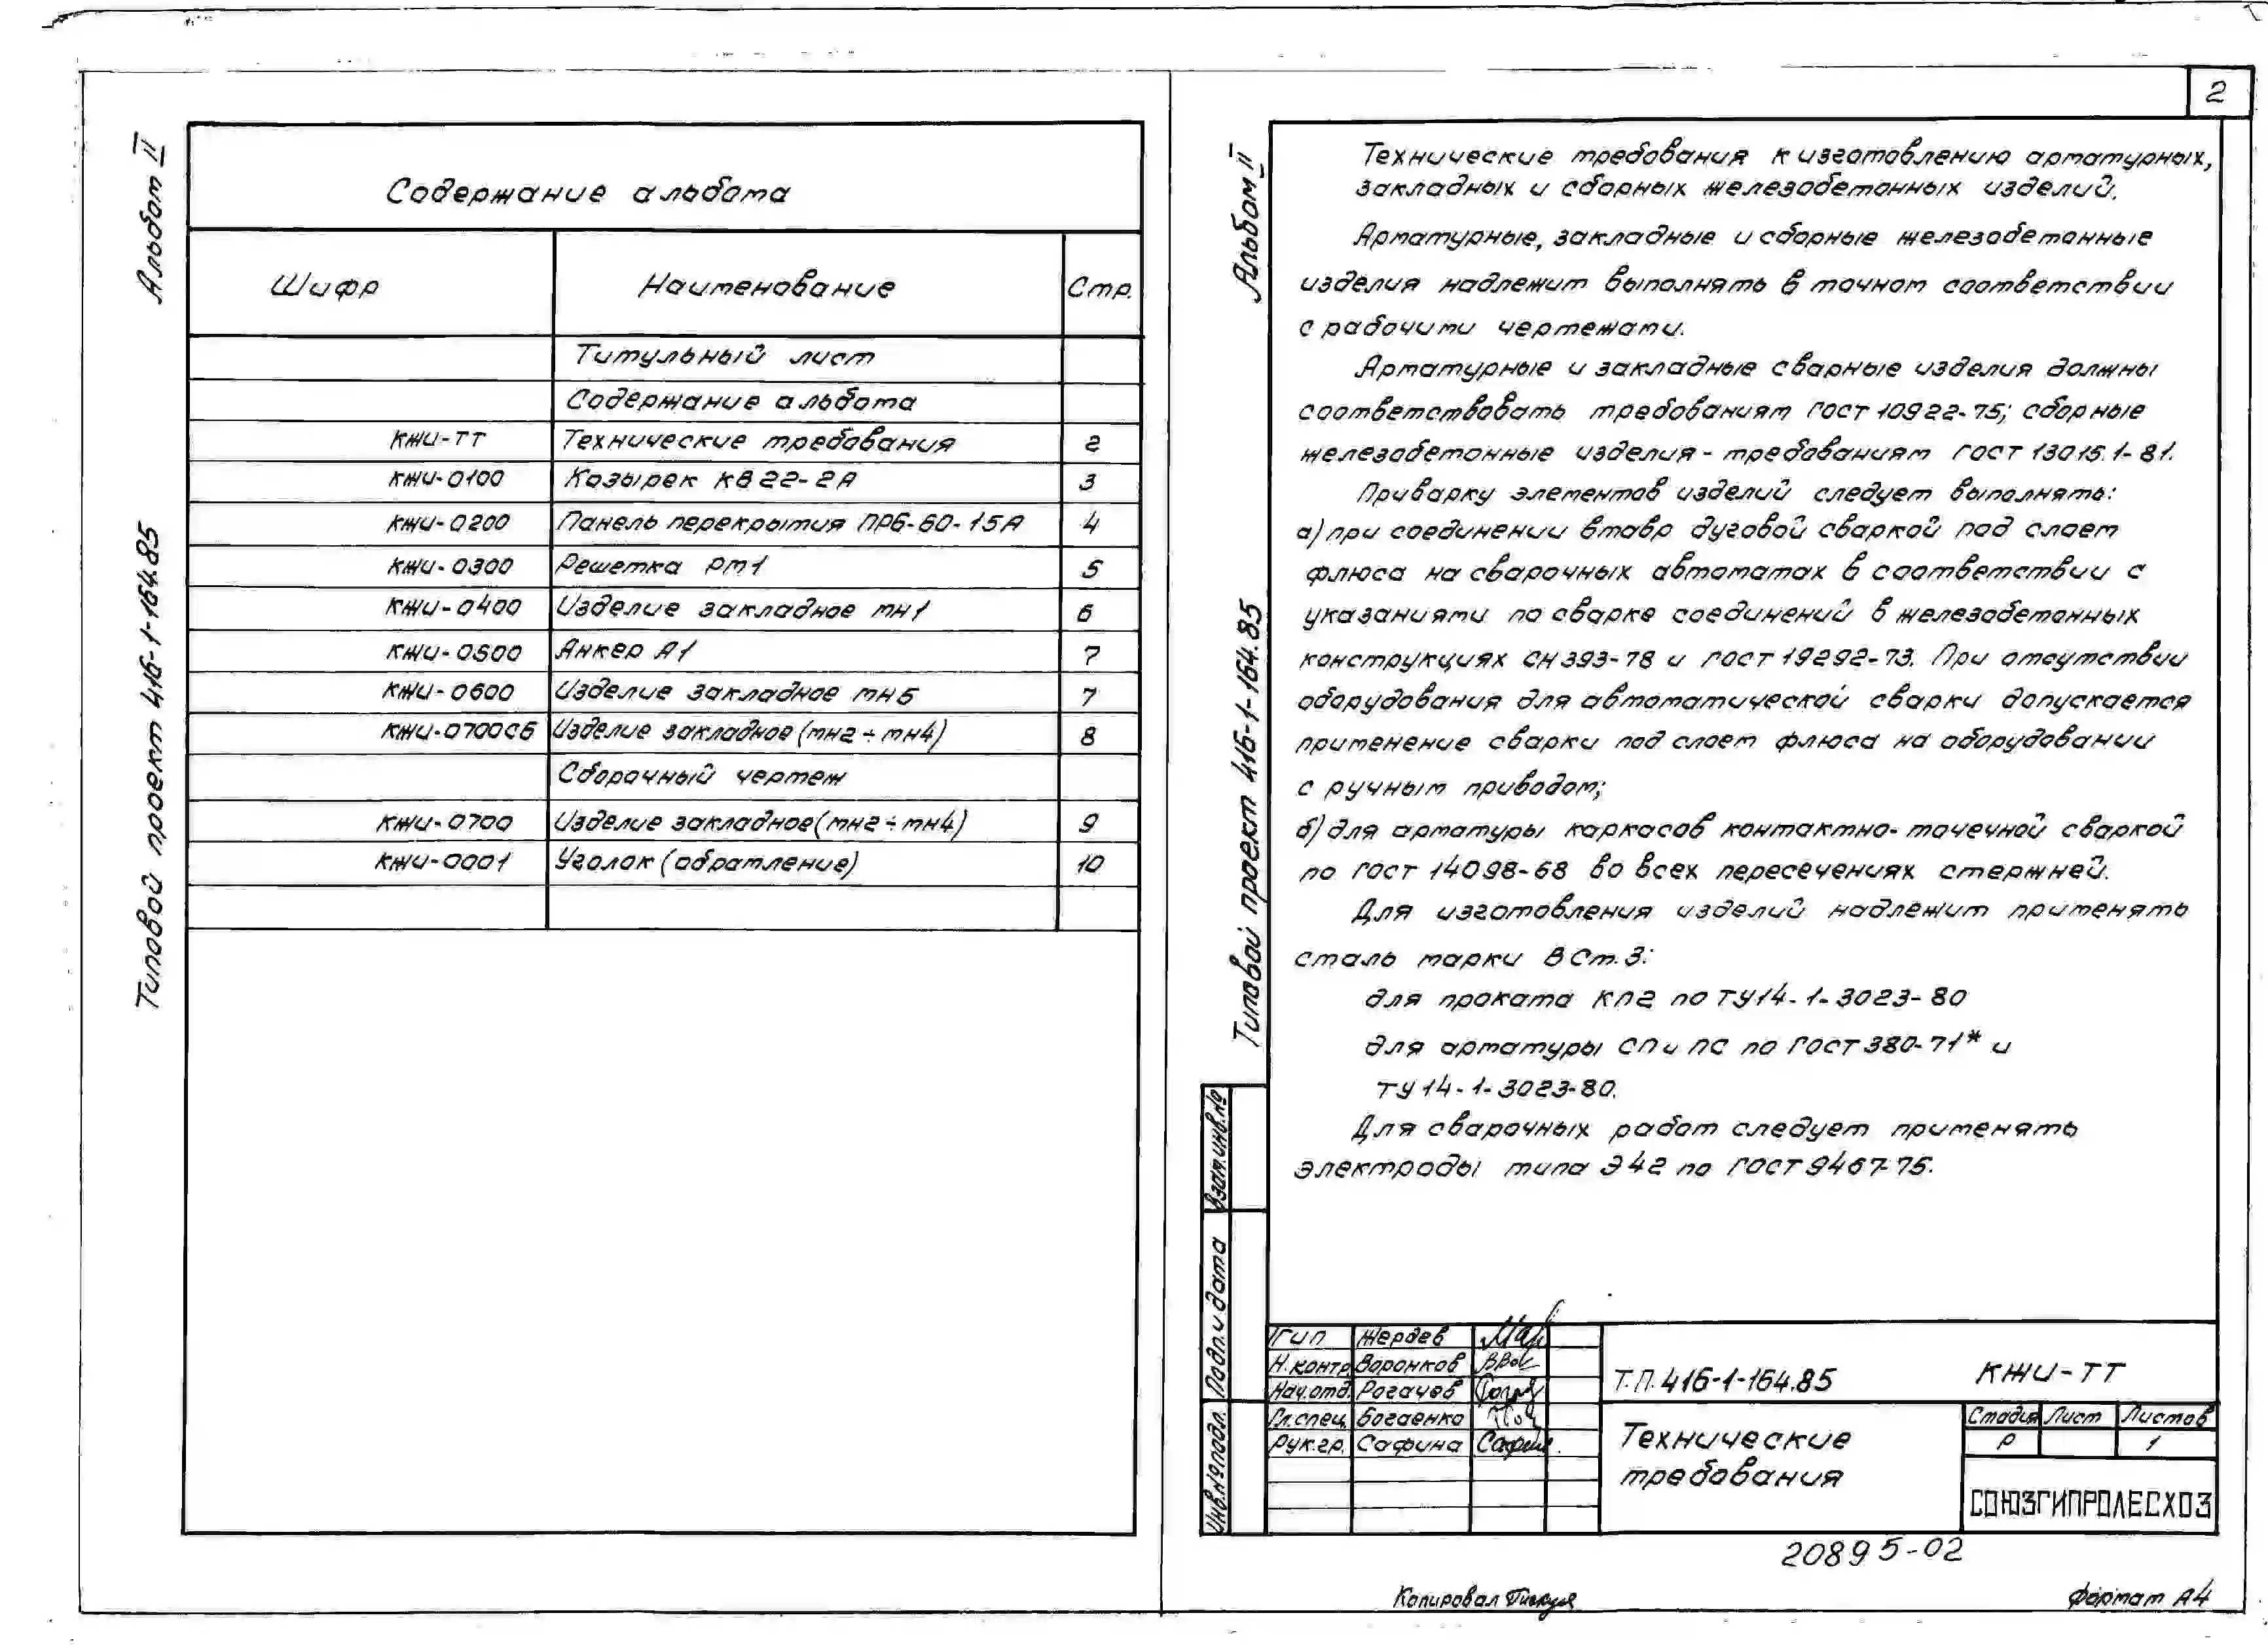 Альбом II
Типовой проект 416-1-164.85
Содержание альбома
Шифр Наименование Стр.
Титульный лист
Содержание альбома
КЖИ-ТТ Технические требования 2
КЖИ-0100 Козырек КВ 22-2А 3
КЖИ-0200 Панель перекрытия ПР6-60-15А 4
КЖИ-0300 Решетка РМ1 5
КЖИ-0400 Изделие закладное МН1 6
КЖИ-0500 Анкер А1 7
КЖИ-0600 Изделие закладное МН5 7
КЖИ-0700СБ Изделие закладное (МН2÷МН4) 8
Сборочный чертеж
КЖИ-0700 Изделие закладное (МН2÷МН4) 9
КЖИ-0001 Уголок (обрамление) 10
2
Альбом II
Типовой проект 416-1-164.85
Технические требования к изготовлению арматурных,
закладных и сборных железобетонных изделий.
Арматурные, закладные и сборные железобетонные
изделия надлежит выполнять в точном соответствии
с рабочими чертежами.
Арматурные и закладные сварные изделия должны
соответствовать требованиям ГОСТ 10922-75; сборные
железобетонные изделия - требованиям ГОСТ 13015.1-81.
Приварку элементов изделий следует выполнять:
а) при соединении втавр дуговой сваркой под слоем
флюса на сварочных автоматах в соответствии с
указаниями по сварке соединений в железобетонных
конструкциях СН 393-78 и ГОСТ 19292-73. При отсутствии
оборудования для автоматической сварки допускается
применение сварки под слоем флюса на оборудовании
с ручным приводом;
б) для арматуры каркасов контактно-точечной сваркой
по ГОСТ 14098-68 во всех пересечениях стержней.
Для изготовления изделий надлежит применять
сталь марки ВСт.3:
для проката КП2 по ТУ14-1-3023-80
для арматуры СП и ПС по ГОСТ 380-71* и
ТУ 14-1-3023-80.
Для сварочных работ следует применять
электроды типа Э42 по ГОСТ 9467-75.
Взам.инв.№
Подп.и дата
Инв.№подл.
ГИП Жердев
Н.контр. Воронков
Нач.отд. Рогачев
Гл.спец. Богаенко
Рук.гр. Сафина
Т.П. 416-1-164.85 КЖИ-ТТ
Технические
требования
Стадия Лист Листов
Р 1
СОЮЗГИПРОЛЕСХОЗ
20895-02
Копировал
Формат А4